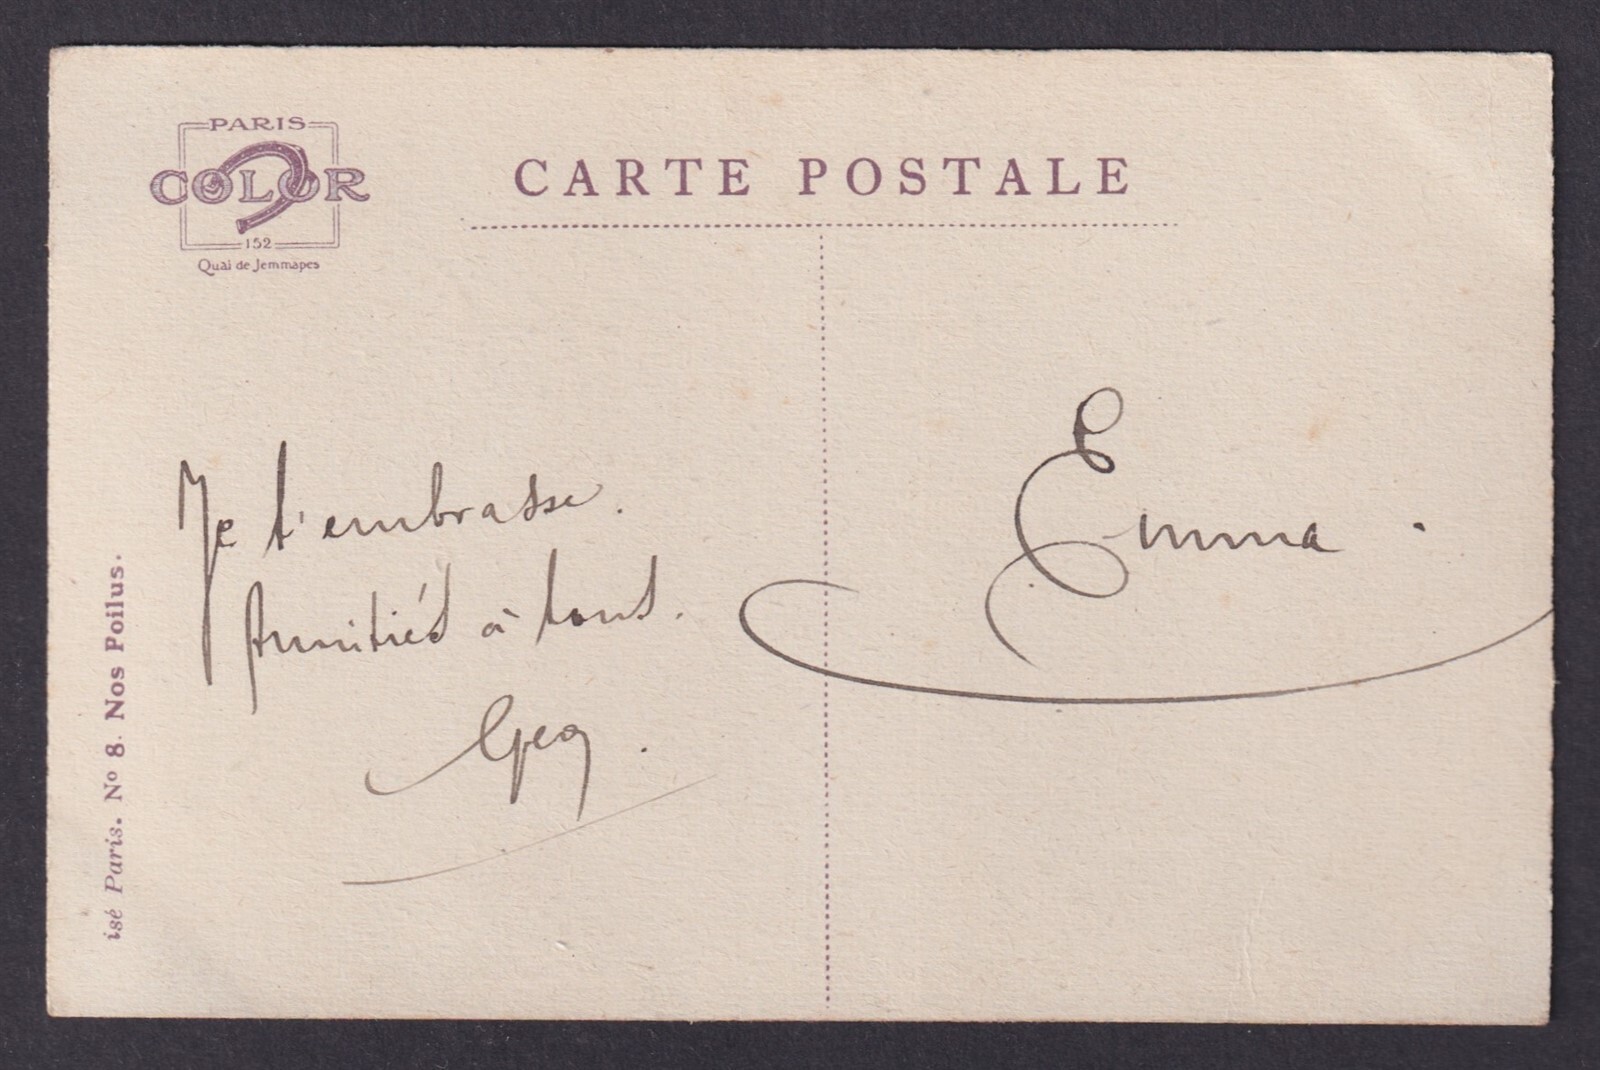 PARIS
COLOR
152
Quai de Jemmapes
CARTE POSTALE
Je t'embrasse.
Amitiés à tous.
Geo.
Emma.
isé Paris. Nº 8. Nos Poilus.